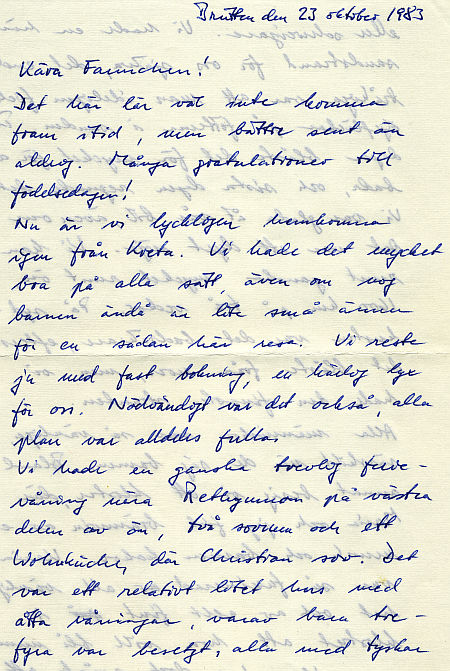 Brütten den 23 oktober 1983
Kära Fannchen!
Det här lär väl inte komma
fram i tid, men bättre sent än
aldrig. Många gratulationer till
födelsedagen!
Nu är vi lyckligen hemkomna
igen från Kreta. Vi hade det mycket
bra på alla sätt, även om nog
barnen ändå är lite små ännu
för en sådan här resa. Vi reste
ju med fast bokning, en härlig lyx
för oss. Nödvändigt var det också, alla
plan var alldeles fulla.
Vi hade en ganska trevlig ferie-
våning nära Rethymnon på västra
delen av ön, två sovrum och ett
Wohnküche, där Christian sov. Det
var ett relativt litet hus med
åtta våningar, varav bara tre-
fyra var besetzt, alla med tyskar